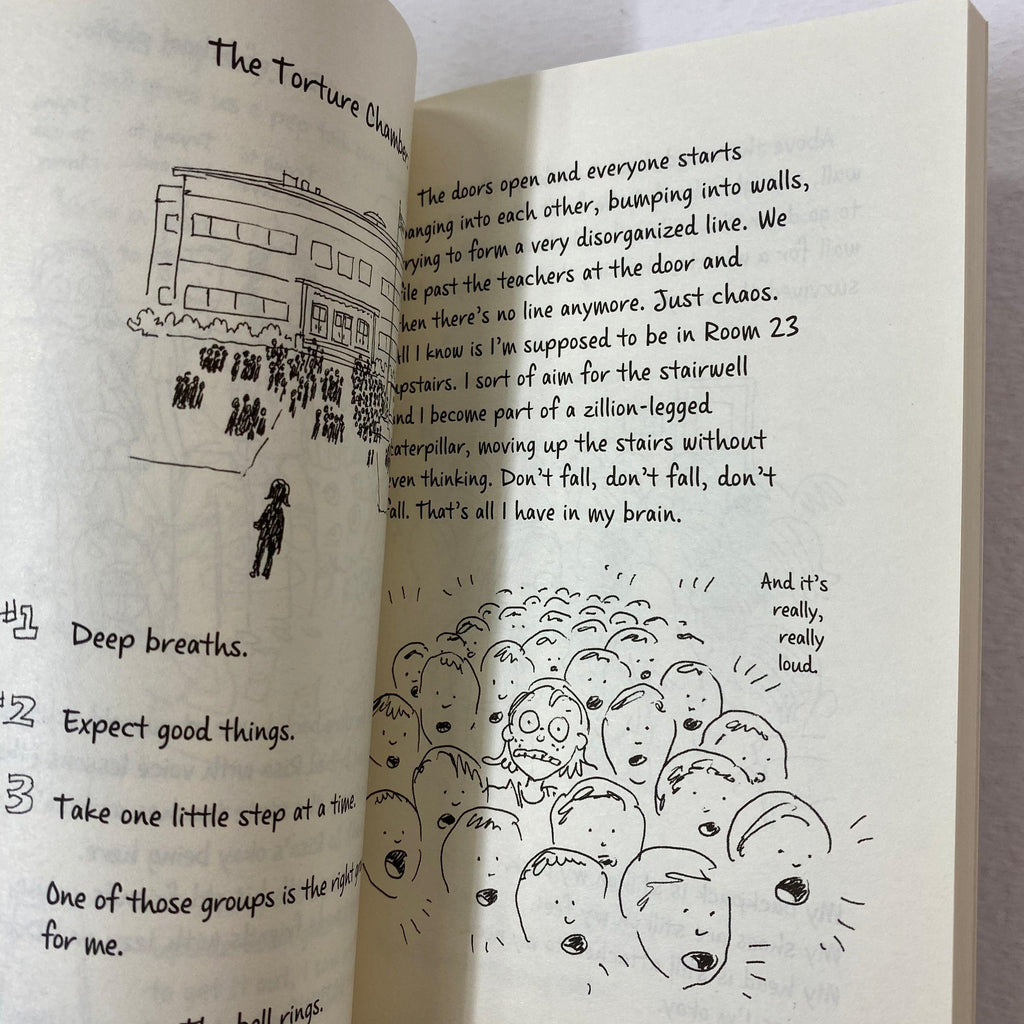 The Torture Chamber
#1
Deep breaths.
#2
Expect good things.
3
Take one little step at a time.
One of those groups is the right
for me.
The bell rings.
The doors open and everyone starts
banging into each other, bumping into walls,
trying to form a very disorganized line. We
file past the teachers at the door and
then there's no line anymore. Just chaos.
All I know is I'm supposed to be in Room 23
upstairs. I sort of aim for the stairwell
and I become part of a zillion-legged
caterpillar, moving up the stairs without
even thinking. Don't fall, don't fall, don't
fall. That's all I have in my brain.
And it's
really,
really
loud.